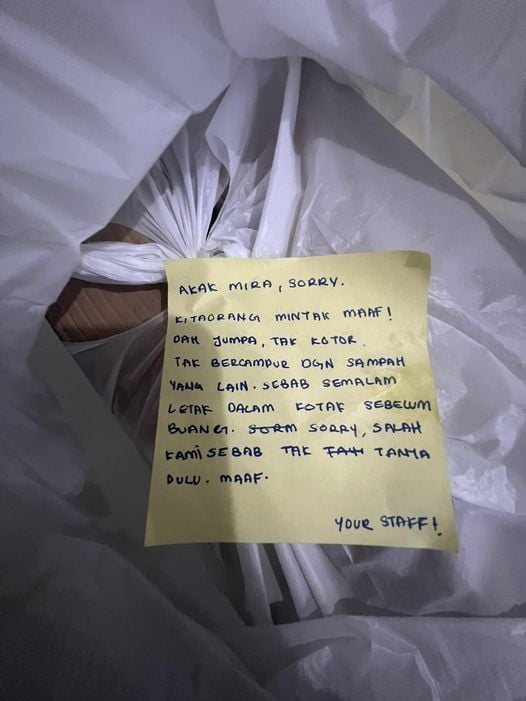 AKAK MIRA, SORRY.
KITAORANG MINTAK MAAF!
DAH JUMPA, TAK KOTOR.
TAK BERCAMPUR DGN SAMPAH
YANG LAIN. SEBAB SEMALAM
LETAK DALAM KOTAK SEBELUM
BUANG. SORRY, SALAH
KAMI SEBAB TAK TANYA
DULU. MAAF.
YOUR STAFF!